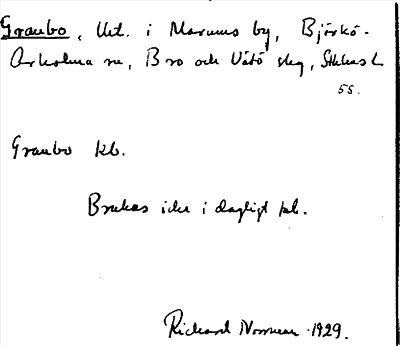 Graubo, Utl. i Marums by, Björkö-
Arholma sn, Bro och Vätö skg, Sthlms L
55.
Graubo kb.
Brukas icke i dagligt tal.
Rickard Norman 1929.